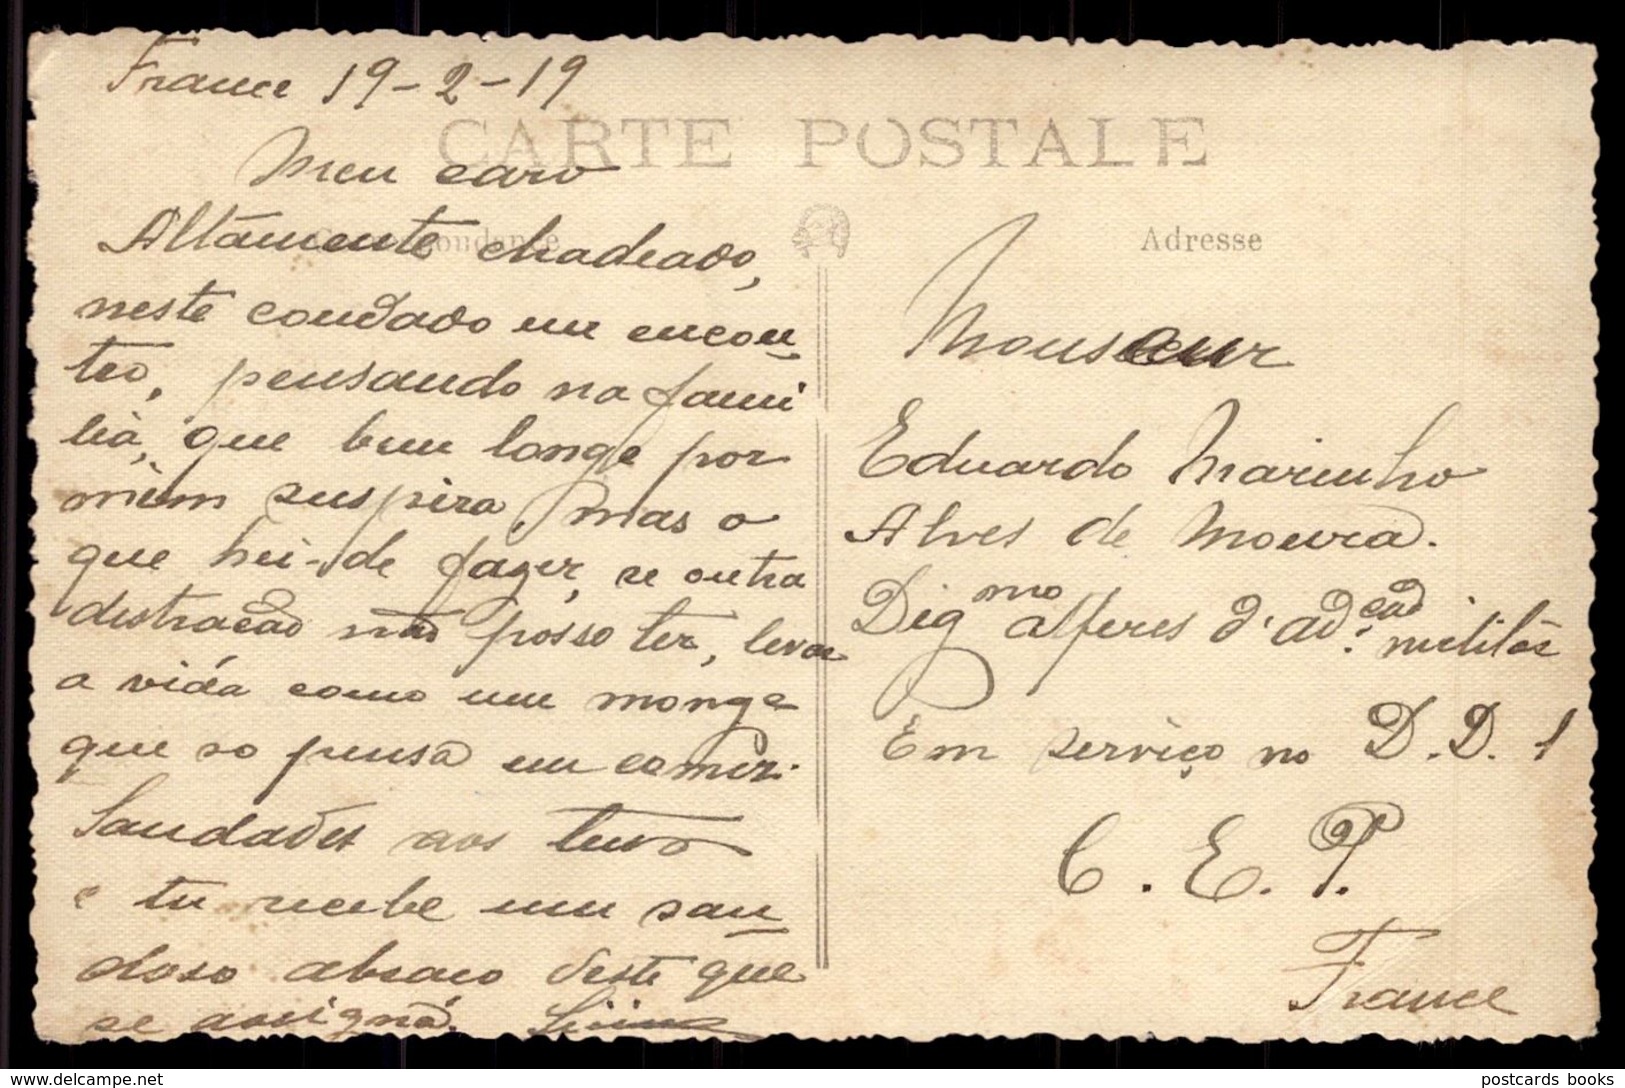 France 19-2-19
CARTE POSTALE
Meu caro
Correspondance
Altamente chadeado,
neste condado me encon-
tro, pensando na fami
lia, que bem longe por
mim suspira, mas o
que hei-de fazer, se outra
distração não posso ter, levar
a vida como um monge
que so pensa em comer.
Saudades aos teus
e tu recebe um sau-
doso abraço deste que
se assigna.
Adresse
Monsieur
Eduardo Marinho
Alves de Moura.
Dig.mo alferes d'ad.ção militar
Em serviço no D.D. 1
C. E. P.
France
postcards books